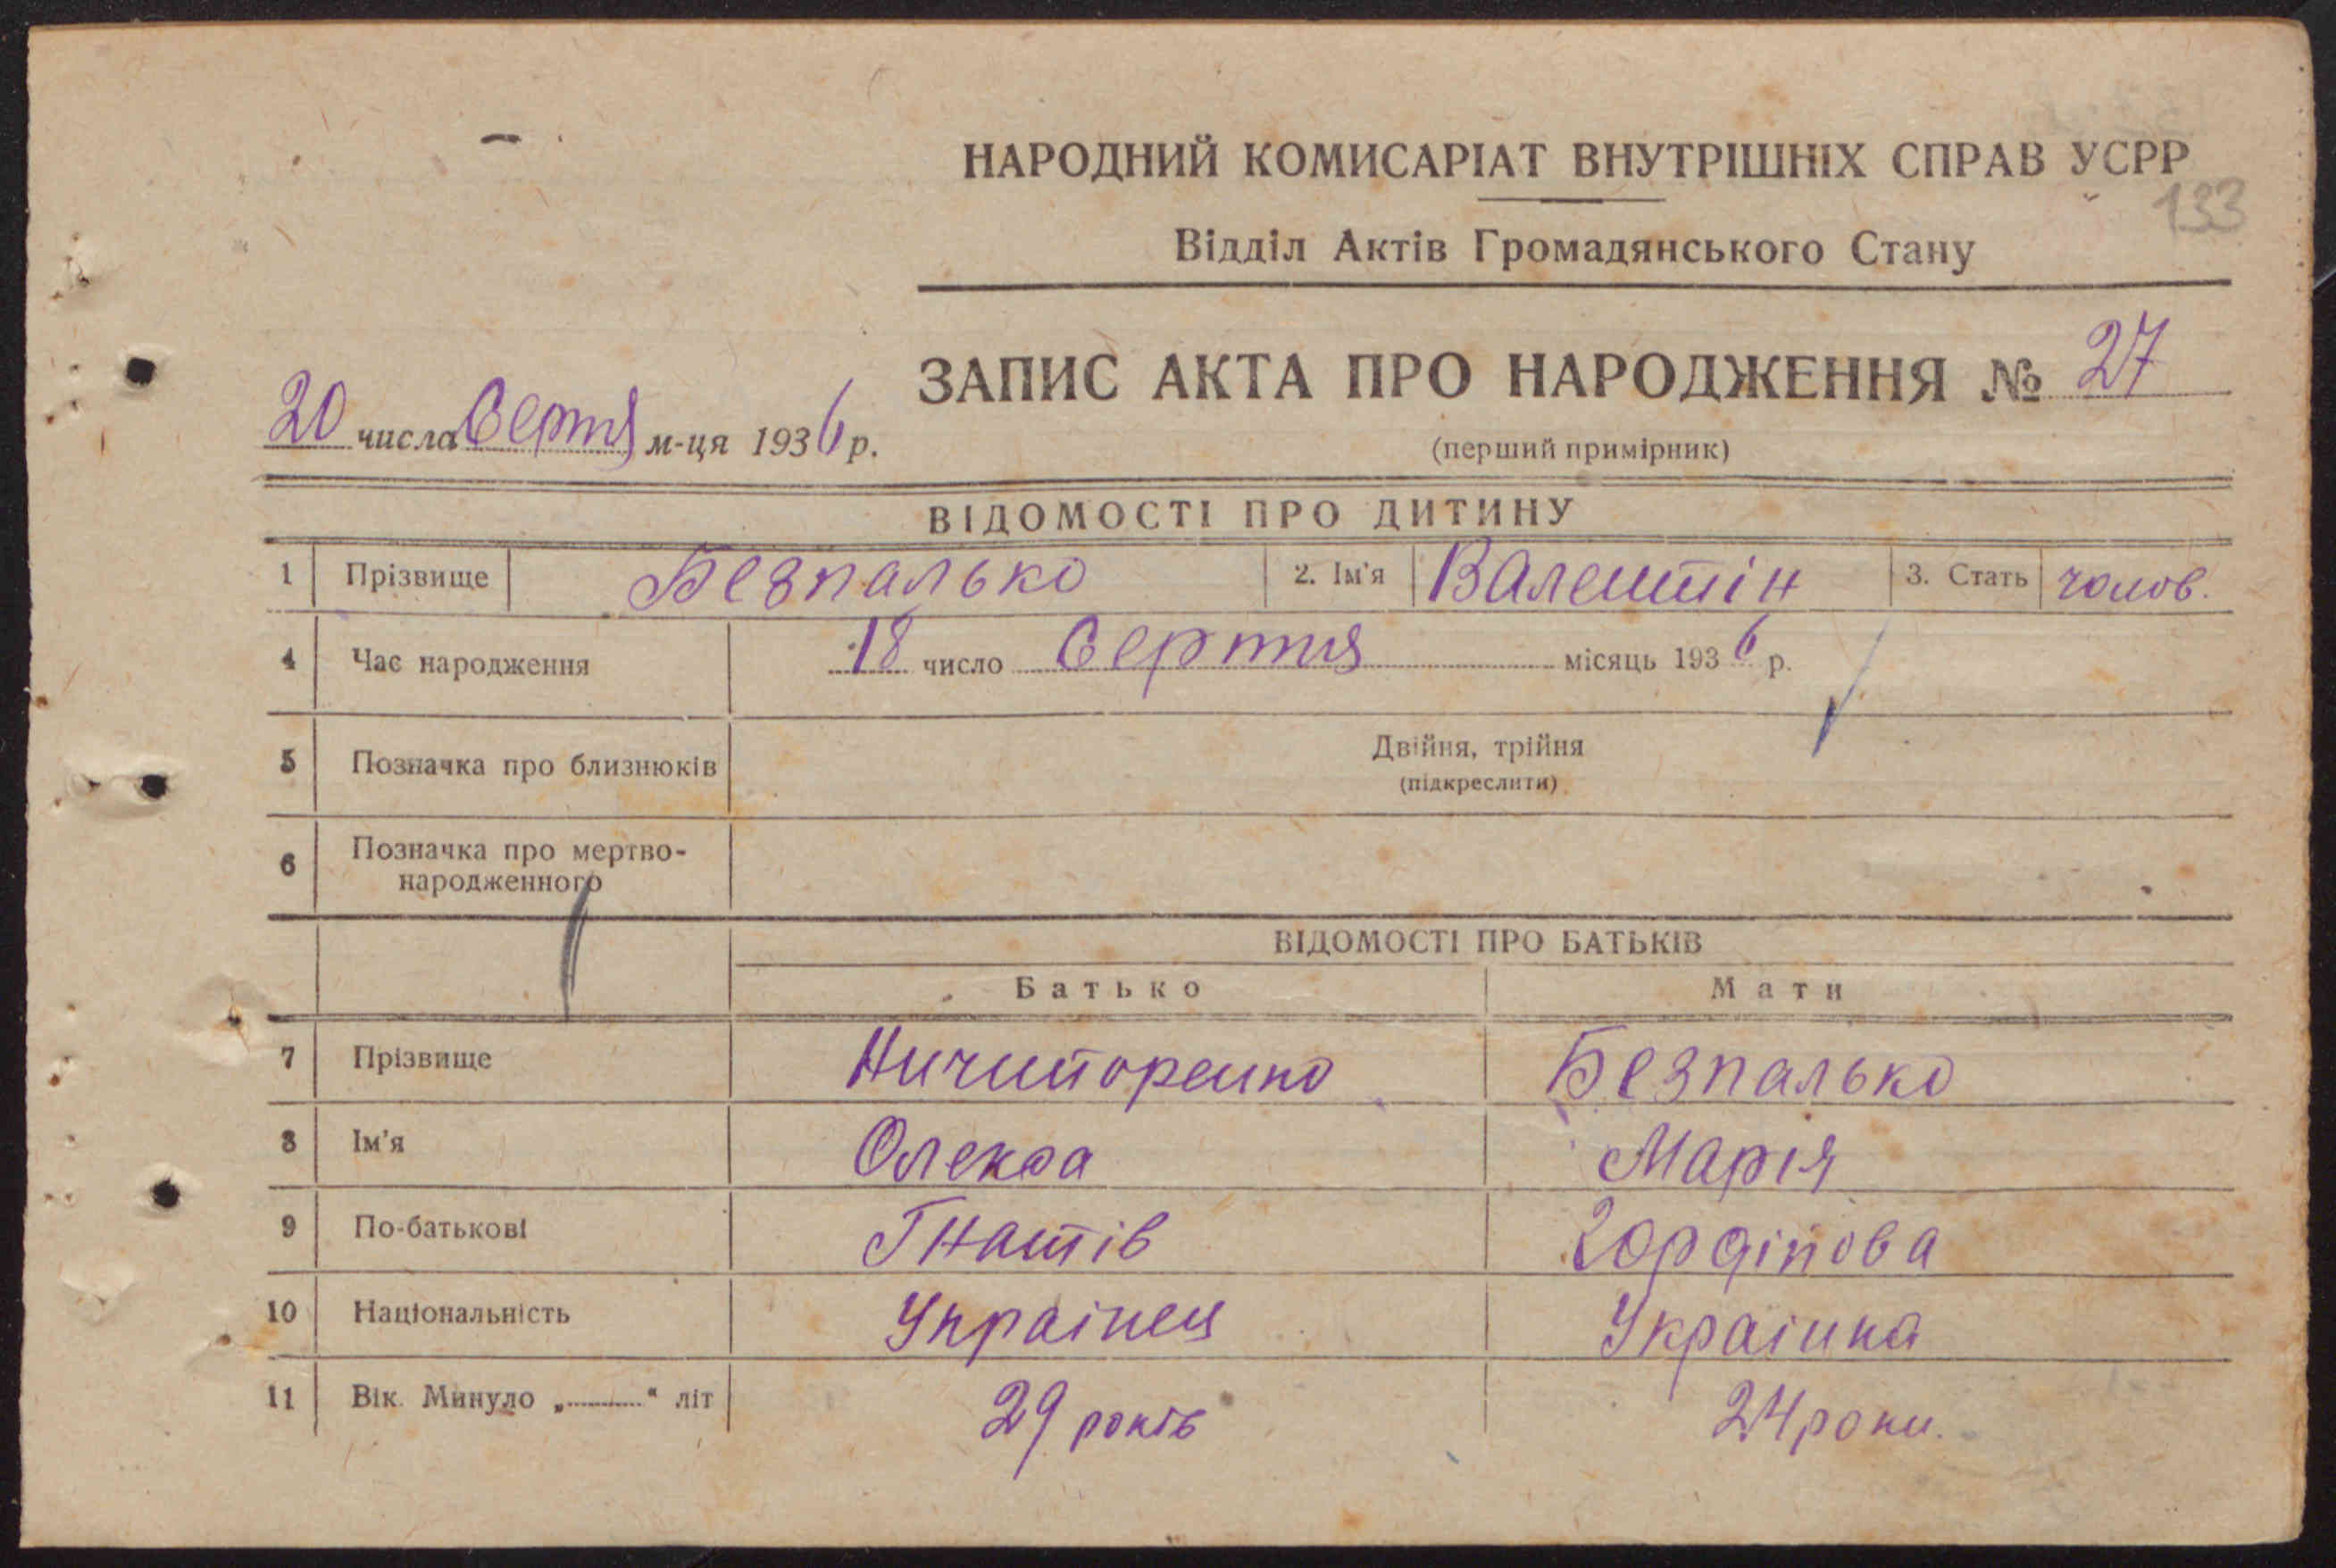 НАРОДНИЙ КОМИСАРІАТ ВНУТРІШНІХ СПРАВ УСРР
133
Відділ Актів Громадянського Стану
ЗАПИС АКТА ПРО НАРОДЖЕННЯ № 27
20 числа Серпня м-ця 1936 р.
(перший примірник)
ВІДОМОСТІ ПРО ДИТИНУ
1 Прізвище Безпалько 2. Ім'я Валентін 3. Стать чолов.
4 Час народження 18 число Серпня місяць 1936 р.
5 Позначка про близнюків Двійня, трійня
(підкреслити)
6 Позначка про мертво-
народженного
ВІДОМОСТІ ПРО БАТЬКІВ
Батько Мати
7 Прізвище Ничипоренко Безпалько
8 Ім'я Олекса Марія
9 По-батькові Гнатів Гордіпова
10 Національність Українець Українка
11 Вік. Минуло „ “ літ 29 років 24 роки.